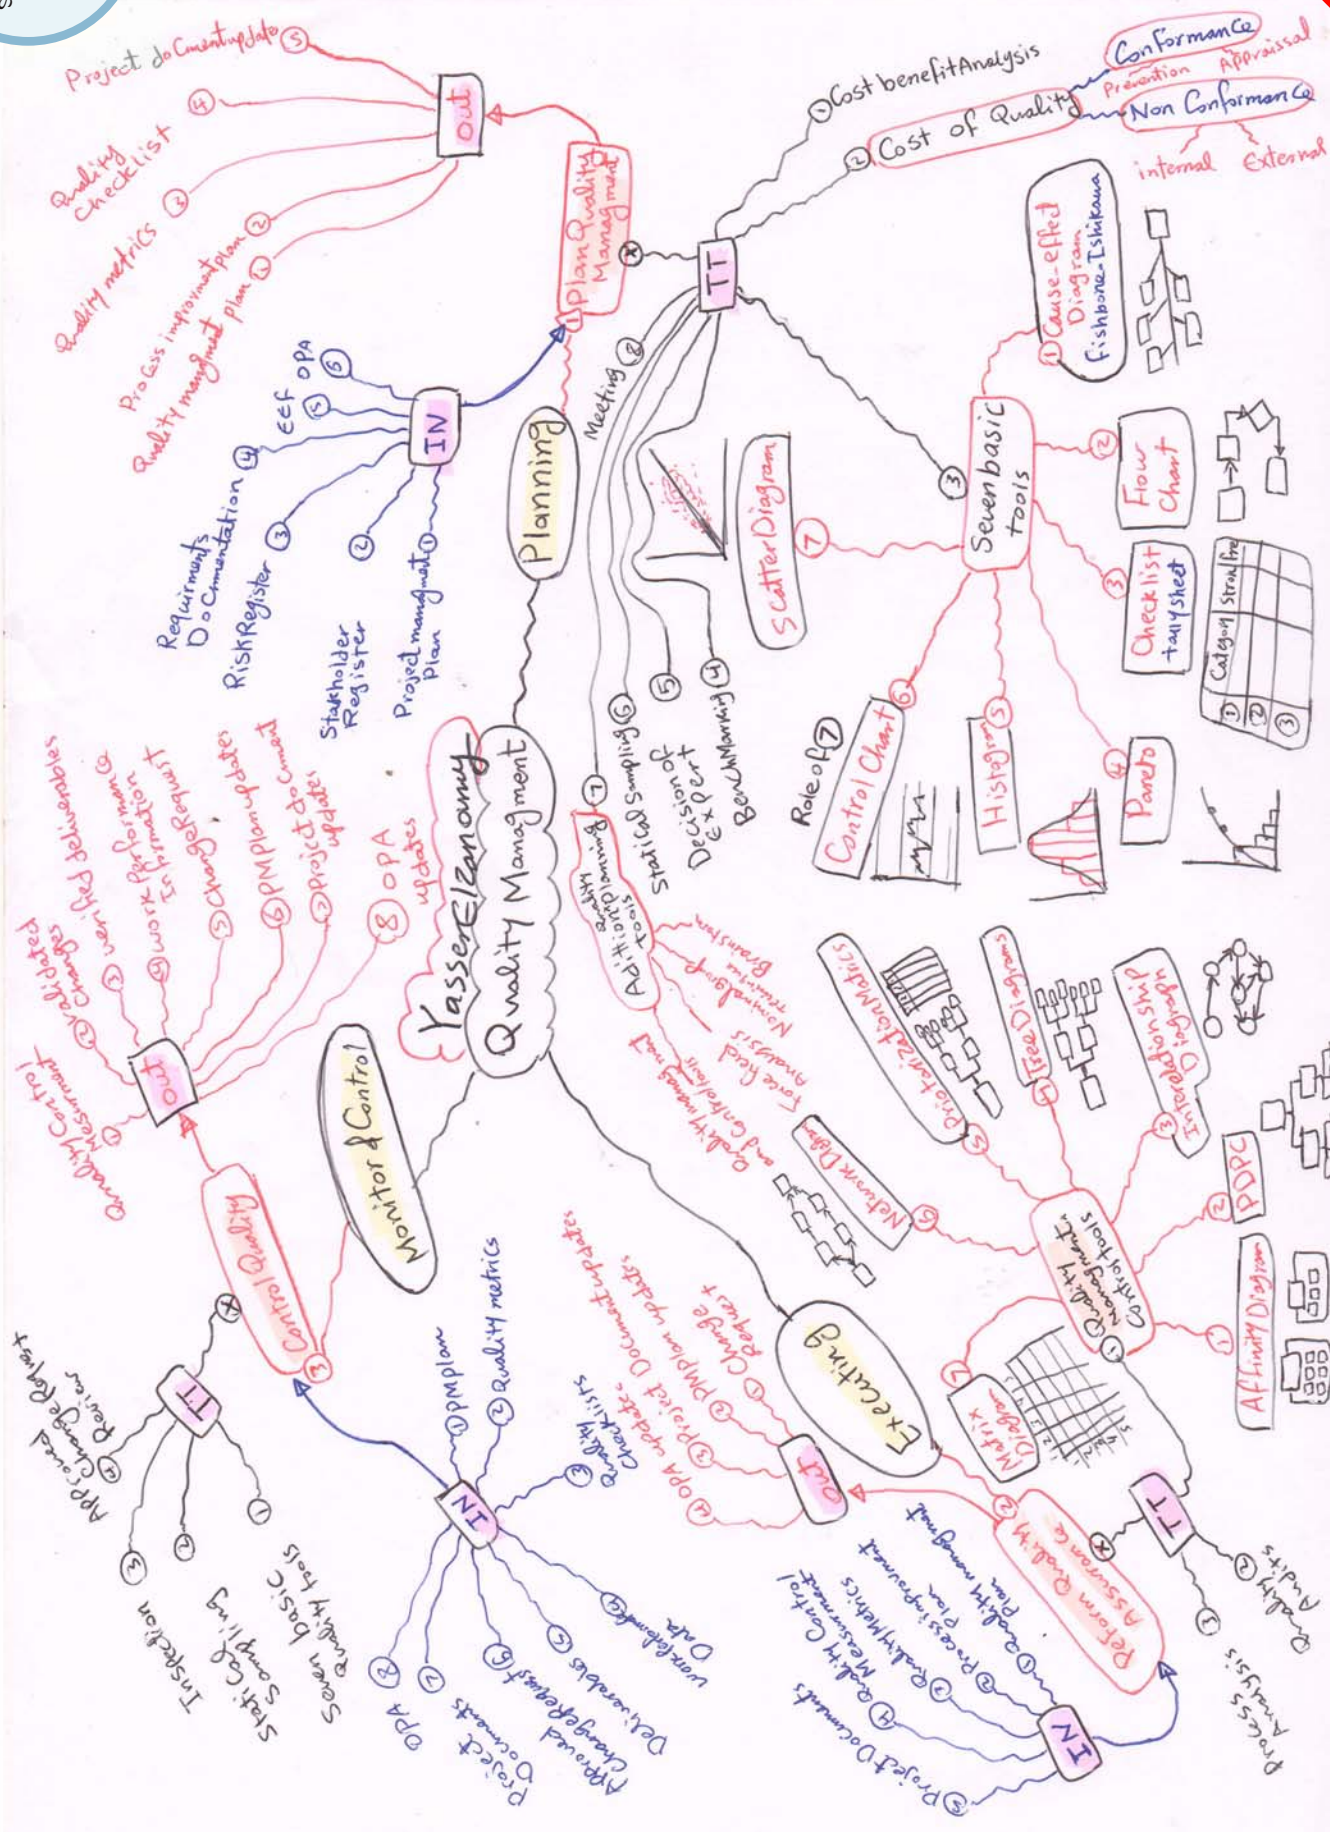 Yasser Elzanamy
Quality Managment
Planning
① Plan Quality
Managment
IN
① Project managment
Plan
② Stakholder
Register
③ Risk Register
④ Requirments
Documentation
⑤ EEF
⑥ OPA
Out
① Quality managment plan
② Process improvment plan
③ Quality metrics
④ Quality
checklist
⑤ Project document update
TT
① Cost benefit Analysis
② Cost of Quality
Conformance
Prevention Appraissal
Non Conformance
internal External
③ Seven basic
tools
① Cause-effect
Diagram
Fishbone-Ishikawa
② Flow
Chart
③ Checklist
tally sheet
Category
① ② ③
④ Pareto
⑤ Histogram
⑥ Control Chart
Role of ⑦
⑦ Scatter Diagram
④ BenchMarking
⑤ Decision of
Expert
⑥ Statical Sampling
⑦ Adittion planning
quality
tools
Brainstorm
Nominal group
Force field
Analysis
Quality managment
and Control tools
⑧ Meeting
Executing
② Perform Quality
Assurance
IN
① Quality managment
Plan
② Process improvment
Plan
③ Quality Metrics
④ Quality Control
Measurment
⑤ Project Documents
Out
① Change
Request
② PM Plan updates
③ Project Document updates
④ OPA updates
TT
① Quality
Managment
Control tools
① Affinity Diagram
② PDPC
③ Interelationship
Diagraph
④ Tree Diagrams
⑤ Priotarization Matrics
⑥ Network Digram
⑦ Matrix
Diagram
② Quality
Audits
③ Process
Analysis
Monitor & Control
③ Control Quality
IN
① PM plan
② Quality metrics
③ Quality
Checklists
④ work Performance
Data
⑤ Deliverables
⑥ Approved
Change Request
⑦ Project
Documents
⑧ OPA
TT
① Seven basic
Quality tools
② Statical
Sampling
③ Inspection
④ Approved
Change Request
Review
Out
① Quality Control
Mesurment
② Validated
Changes
③ verified deliverables
④ work Performance
Information
⑤ Change Request
⑥ PM Plan updates
⑦ Project document
updates
⑧ OPA
updates